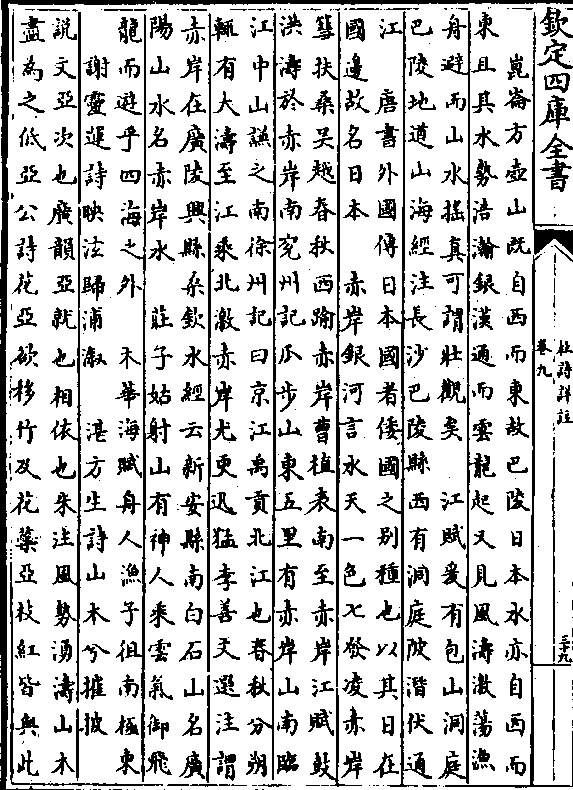 欽定四庫全書
杜詩詳註
卷九
三十九
崑崙方壺山既自西而東故巴陵日本水亦自西而
東且其水勢浩瀚銀漢通而雲龍起又見風濤激蕩漁
舟避而山水搖真可謂壯觀矣 江賦爰有包山洞庭
巴陵地道山海經注長沙巴陵縣西有洞庭陂潛伏通
江 唐書外國傳日本國者倭國之别種也以其日在
國邊故名日本 赤岸銀河言水天一色七發凌赤岸
篲扶桑吴越春秋西踰赤岸曹植表南至赤岸江賦鼓
洪濤於赤岸南兖州記瓜步山東五里有赤岸山南臨
江中山謙之南徐州記曰京江禹貢北江也春秋分朔
輒有大濤至江乘北激赤岸尤更迅猛李善文選注謂
赤岸在廣陵興縣桑欽水經云新安縣南白石山名廣
陽山水名赤岸水 莊子姑射山有神人乘雲氣御飛
龍而遊乎四海之外 木華海賦舟人漁子徂南極東
謝靈運詩映泫歸溆浦 湛方生詩山木兮摧披
説文亞次也廣韻亞就也相依也朱注風勢湧濤山木
盡為之低亞公詩花亞欲移竹及花蘂亞枝紅皆與此